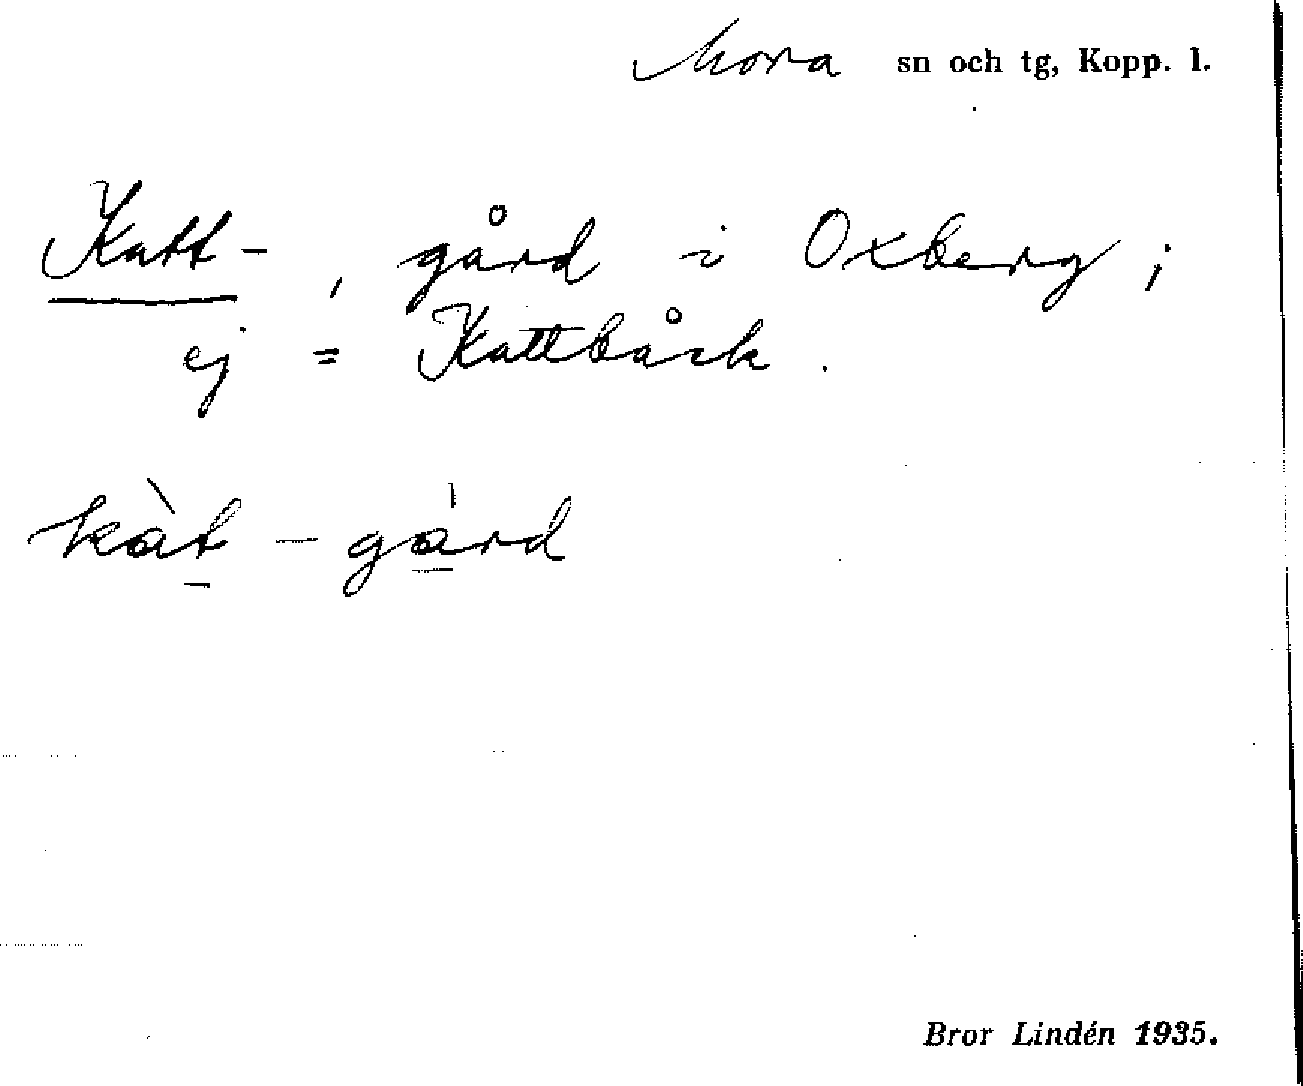 Mora sn och tg, Kopp. l.
Katt-, gård i Oxberg;
ej = Kattbåck.
kàt - gárd
Bror Lindén 1935.